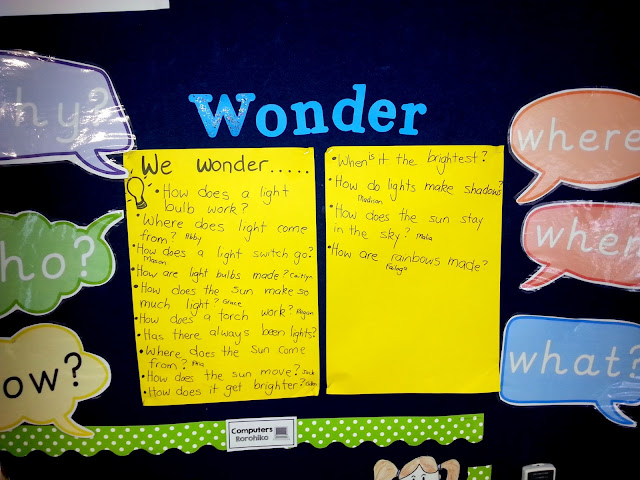 Wonder
hy?
ho?
ow?
We wonder.....
• How does a light
bulb work?
• Where does light come
from? Abby
• How does a light switch go?
Mason
• How are light bulbs made? Caitlyn
• How does the sun make so
much light? Grace
• How does a torch work? Regan
• Has there always been lights?
• Where does the sun come
from?
• How does the sun move? Jack
• How does it get brighter?
• When is it the brightest?
• How do lights make shadows?
Madison
• How does the sun stay
in the sky? Malia
• How are rainbows made?
where
when
what?
Computers
Rorohiko